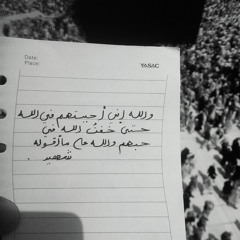 Date:
Place:
YASAC
والله إني أحببتهم في الله
حتى خفت الله في
حبهم والله على ما أقوله
شهيد.